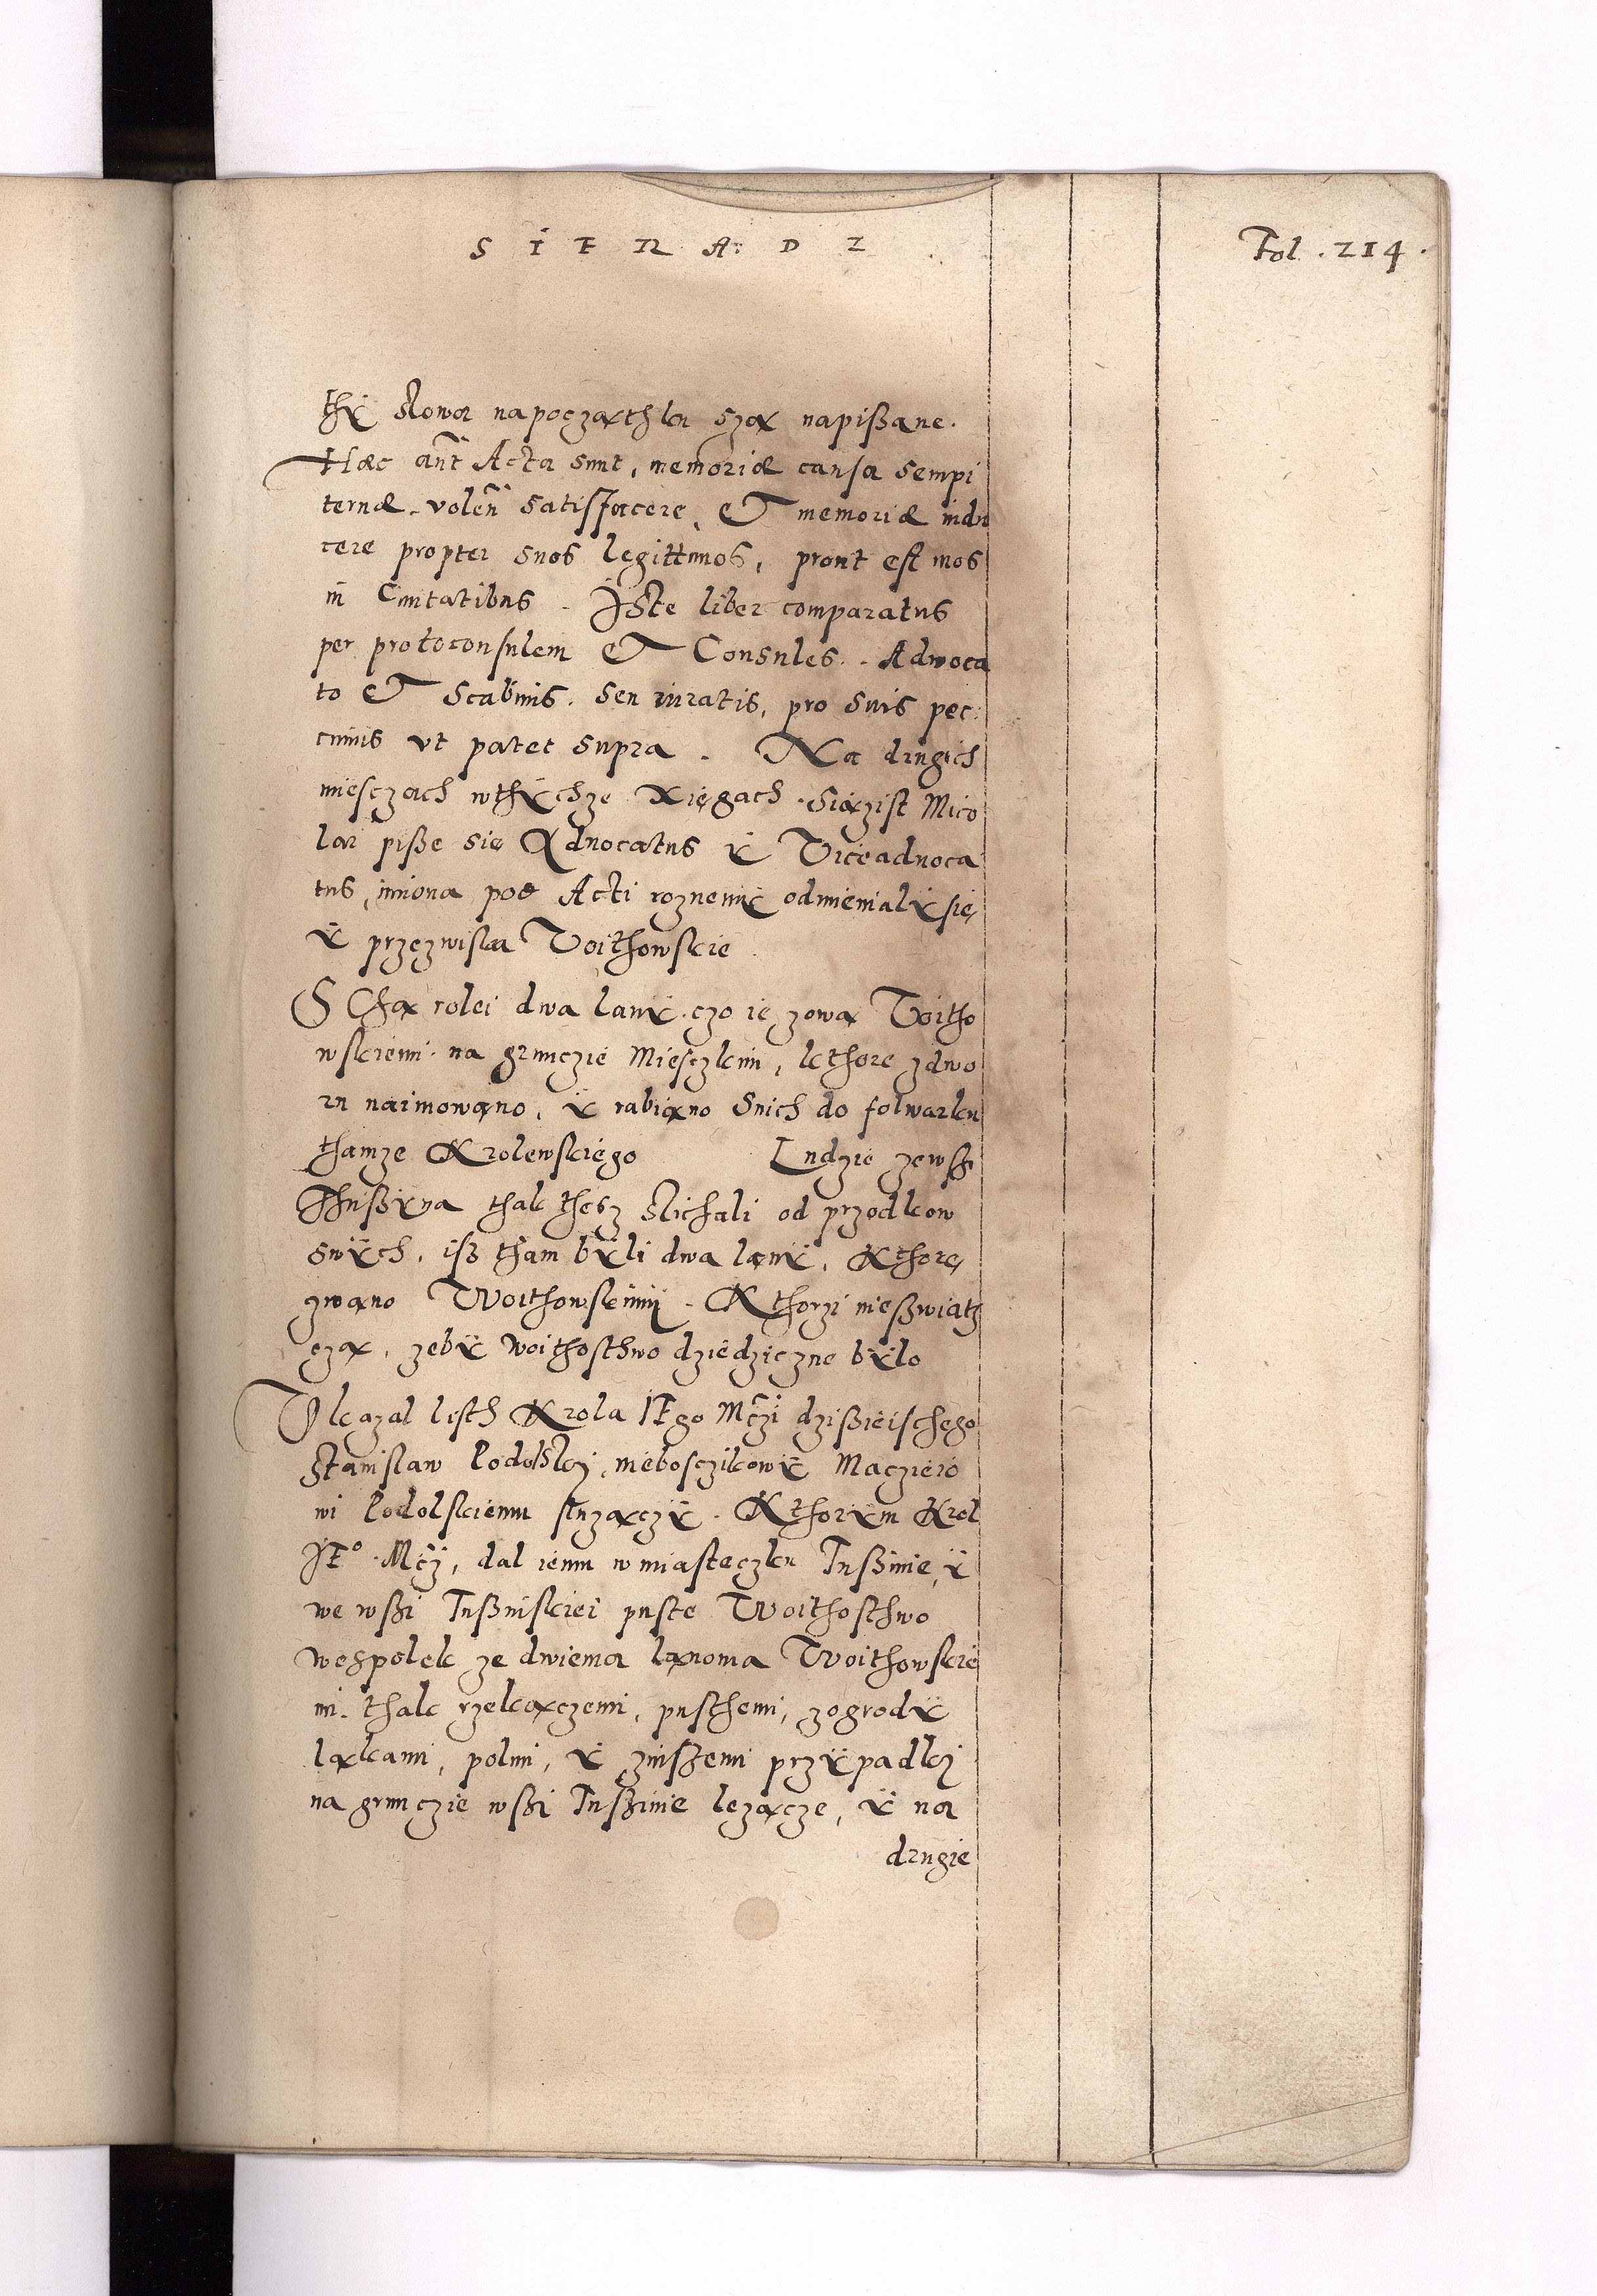 SIERADZ
Fol. 214.
thÿ slowa napocząthku szą napißane.
Hæc aut̃ Acta sunt, memoriæ causa sempi
ternæ. volen̄ satisfacere, Et memoriæ indu
cere propter suos legittimos, prout est mos
in Ciuitatibus. Iste liber comparatus
per protoconsulem Et Consules. Adwoca
to Et scabinis. seu iuratis, pro suis pec:
cuniis vt patet supra. Na drugich
miesczach wthÿchze Xięgach. Siązist Mico
lai piße się Aduocatus ÿ Viceaduoca
tus, imiona poe Acti roznemiÿ odmienialÿ się
ÿ przęzwiska Voithowskie
S Cṡą rolei dwa lanÿ. czo ię zową Voitho
wskiemi. na grunczie Miesczkim, kthore zdwo
ru naimowano, ÿ rabiąno Snich do folwarku
thamze Krolewskiego Ludzie zewsi
Thußÿna thak thesz slichali od przodkow
swÿch, iß tham bÿli dwa lanÿ, Kthorę
zwąno Woithowskimi. Kthorzi nießwiath
czą, zebÿ woithosthwo dziedziczne bÿlo
Vkazal listh Krola IEgo Mc̃zi dzißieischego
Stanislaw Podolski, nieboszczikowÿ Maczieio
wi Podolskiemu sluzączÿ. Kthorÿm Krol
IE° Mc̃zÿ, dal iemu w miasteczku Tußinie, ÿ
we wßi Tußinskiei puste Woithosthwo
wespolek ze dwiema lanoma Woithowskie
mi. thak rzekączemi, pusthemi, zogrodÿ
ląkami, polmi, ÿ zinßemi przÿpadki
na grunczie wßi Tußinie leząćze, ÿ na
drugie